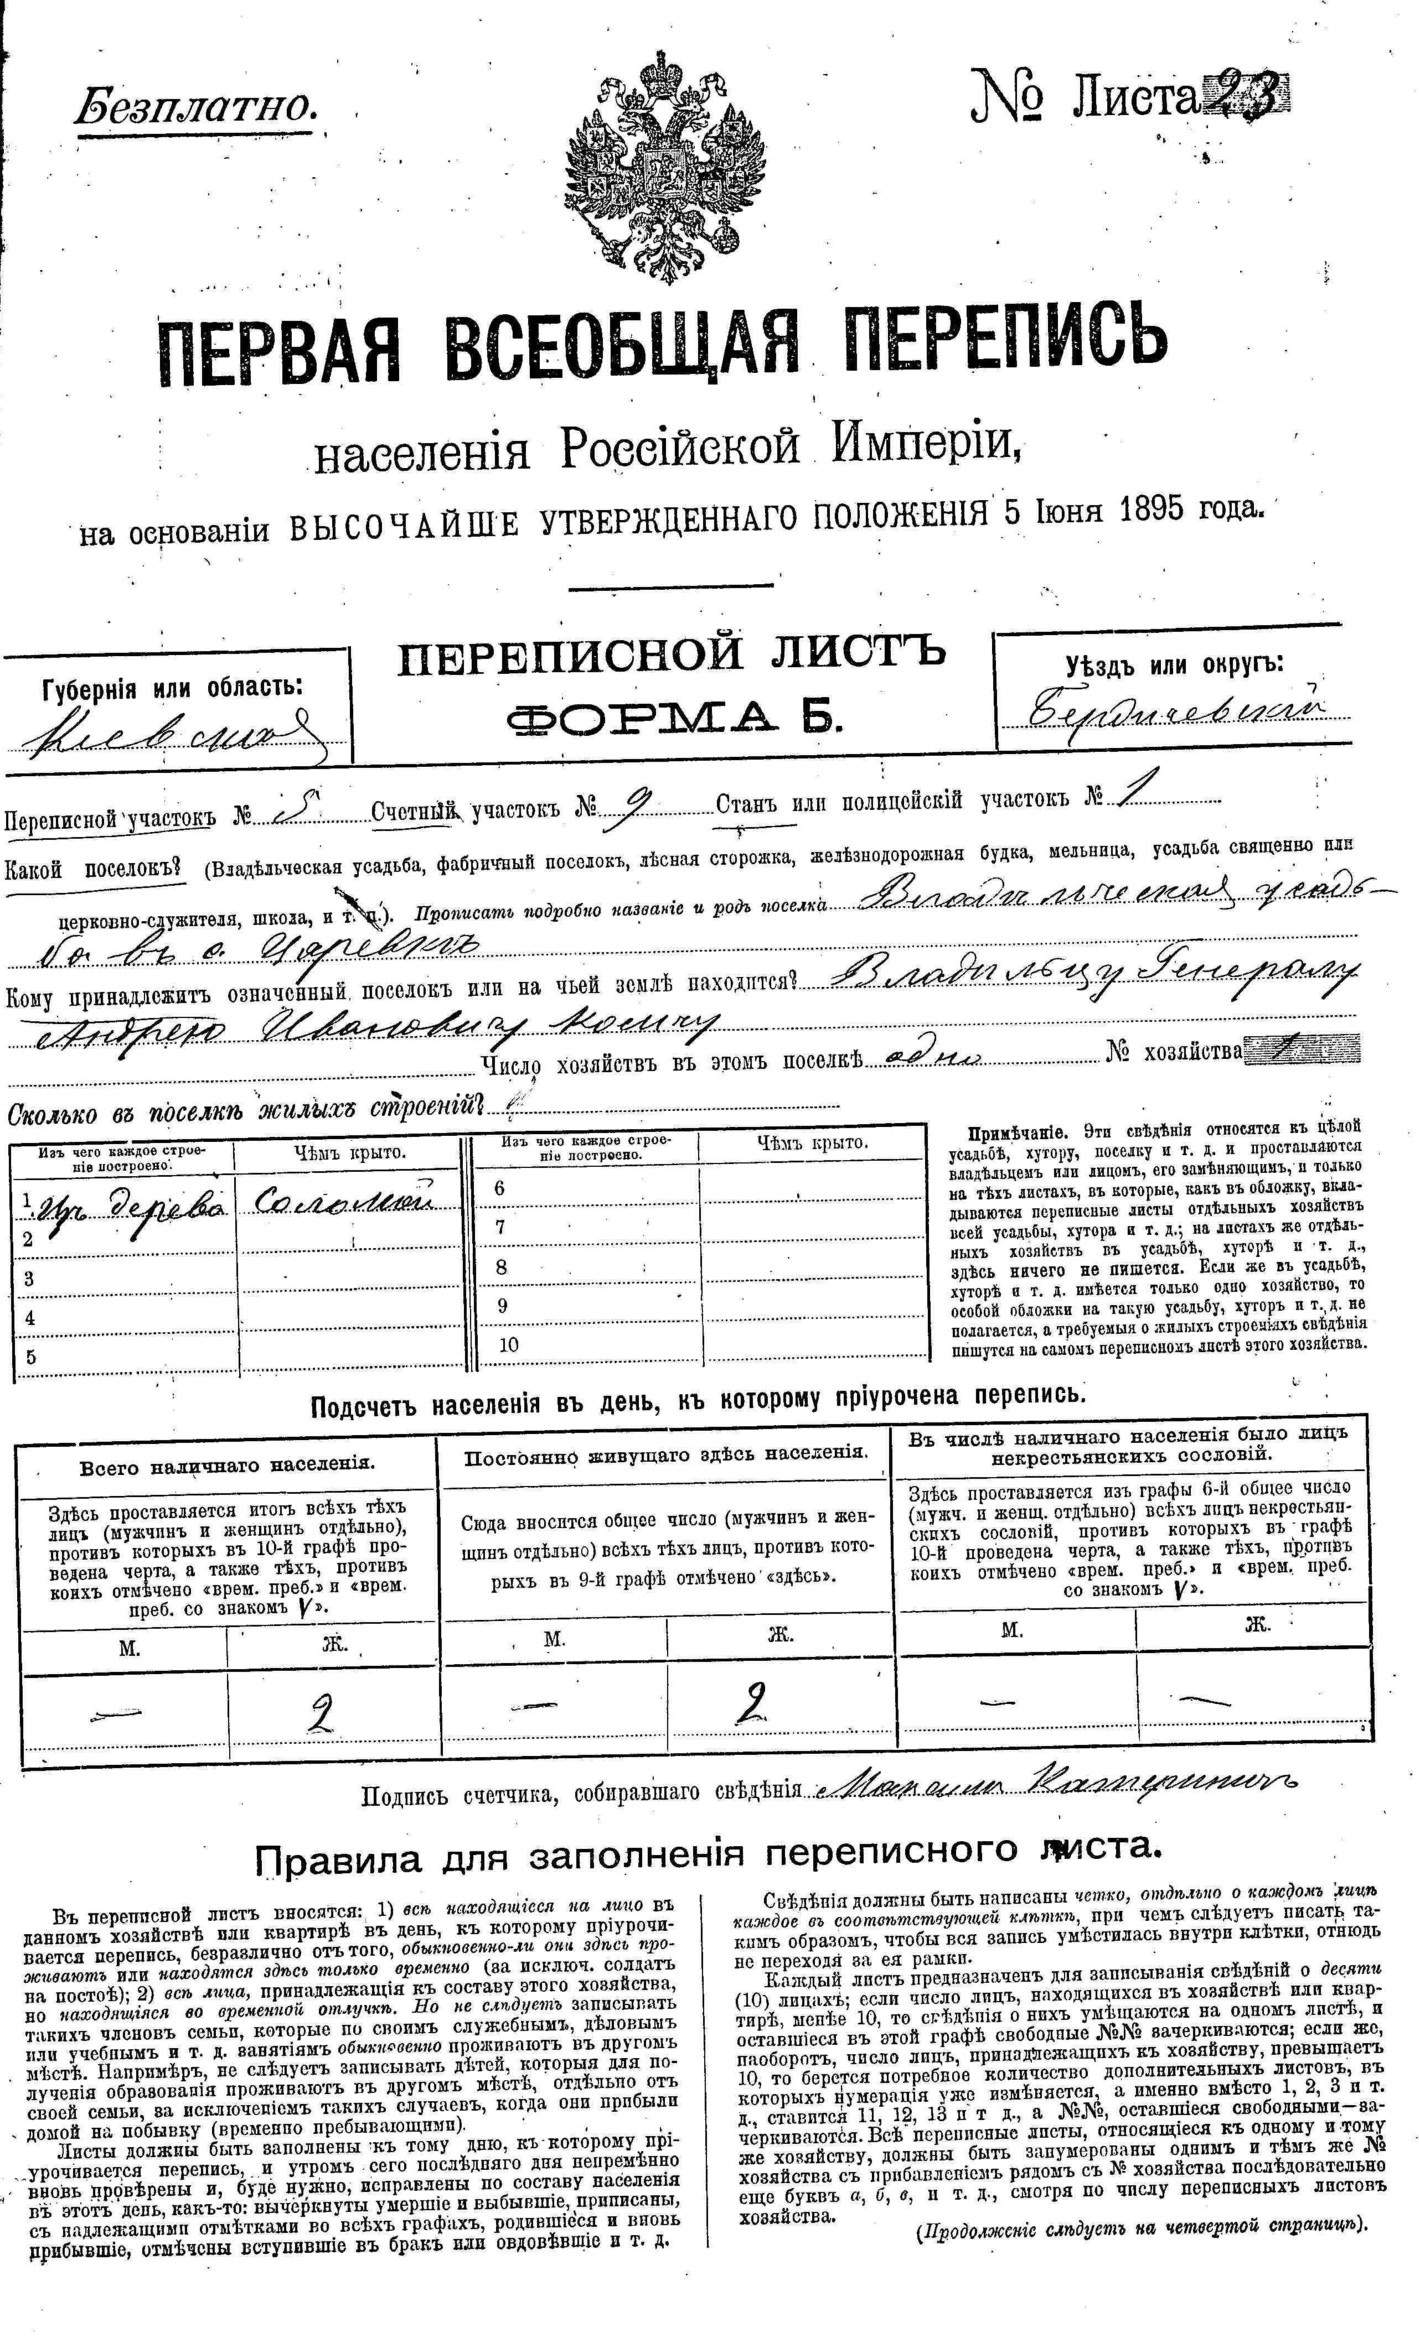 Безплатно.
№ Листа 23
ПЕРВАЯ ВСЕОБЩАЯ ПЕРЕПИСЬ
населенія Россійской Имперіи,
на основаніи ВЫСОЧАЙШЕ УТВЕРЖДЕННАГО ПОЛОЖЕНІЯ 5 Іюня 1895 года.
Губернія или область:
Кіевская
ПЕРЕПИСНОЙ ЛИСТЪ
ФОРМА Б.
Уѣздъ или округъ:
Бердичевскій
Переписной участокъ № 5 Счетный участокъ № 9 Станъ или полицейскій участокъ № 1
Какой поселокъ? (Владѣльческая усадьба, фабричный поселокъ, лѣсная сторожка, желѣзнодорожная будка, мельница, усадьба священно или
церковно-служителя, школа, и т. п.). Прописать подробно названіе и родъ поселка Владѣльческая усадь-
ба въ с. Царевкѣ
Кому принадлежитъ означенный поселокъ или на чьей землѣ находится? Владѣльцу Генералу
Андрею Ивановичу
Число хозяйствъ въ этомъ поселкѣ одно № хозяйства 1
Сколько въ поселкѣ жилыхъ строеній?
Изъ чего каждое строе-
ніе построено.
Чѣмъ крыто.
Изъ чего каждое строе-
ніе построено.
Чѣмъ крыто.
1 Изъ дерева Соломой
2
3
4
5
6
7
8
9
10
Примѣчаніе. Эти свѣдѣнія относятся къ цѣлой
усадьбѣ, хутору, поселку и т. д. и проставляются
владѣльцемъ или лицомъ, его замѣняющимъ, и только
на тѣхъ листахъ, въ которые, какъ въ обложку, вкла-
дываются переписные листы отдѣльныхъ хозяйствъ
всей усадьбы, хутора и т. д.; на листахъ же отдѣль-
ныхъ хозяйствъ въ усадьбѣ, хуторѣ и т. д.,
здѣсь ничего не пишется. Если же въ усадьбѣ,
хуторѣ и т. д. имѣется только одно хозяйство, то
особой обложки на такую усадьбу, хуторъ и т. д. не
полагается, а требуемыя о жилыхъ строеніяхъ свѣдѣнія
пишутся на самомъ переписномъ листѣ этого хозяйства.
Подсчетъ населенія въ день, къ которому пріурочена перепись.
Всего наличнаго населенія.
Здѣсь проставляется итогъ всѣхъ тѣхъ
лицъ (мужчинъ и женщинъ отдѣльно),
противъ которыхъ въ 10-й графѣ про-
ведена черта, а также тѣхъ, противъ
коихъ отмѣчено «врем. преб.» и «врем.
преб. со знакомъ V».
Постоянно живущаго здѣсь населенія.
Сюда вносится общее число (мужчинъ и жен-
щинъ отдѣльно) всѣхъ тѣхъ лицъ, противъ кото-
рыхъ въ 9-й графѣ отмѣчено «здѣсь».
Въ числѣ наличнаго населенія было лицъ
некрестьянскихъ сословій.
Здѣсь проставляется изъ графы 6-й общее число
(мужч. и женщ. отдѣльно) всѣхъ лицъ некрестьян-
скихъ сословій, противъ которыхъ въ графѣ
10-й проведена черта, а также тѣхъ, противъ
коихъ отмѣчено «врем. преб.» и «врем. преб.
со знакомъ V».
М. Ж. М. Ж. М. Ж.
— 2 — 2 — —
Подпись счетчика, собиравшаго свѣдѣнія
Правила для заполненія переписного листа.
Въ переписной листъ вносятся: 1) всѣ находящіеся на лицо въ
данномъ хозяйствѣ или квартирѣ въ день, къ которому пріурочи-
вается перепись, безразлично отъ того, обыкновенно-ли они здѣсь про-
живаютъ или находятся здѣсь только временно (за исключ. солдатъ
на постоѣ); 2) всѣ лица, принадлежащія къ составу этого хозяйства,
но находящіяся во временной отлучкѣ. Но не слѣдуетъ записывать
такихъ членовъ семьи, которые по своимъ служебнымъ, дѣловымъ
или учебнымъ и т. д. занятіямъ обыкновенно проживаютъ въ другомъ
мѣстѣ. Напримѣръ, не слѣдуетъ записывать дѣтей, которыя для по-
лученія образованія проживаютъ въ другомъ мѣстѣ, отдѣльно отъ
своей семьи, за исключеніемъ такихъ случаевъ, когда они прибыли
домой на побывку (временно пребывающими).
Листы должны быть заполнены къ тому дню, къ которому прі-
урочивается перепись, и утромъ сего послѣдняго дня непремѣнно
вновь провѣрены и, буде нужно, исправлены по составу населенія
въ этотъ день, какъ-то: вычеркнуты умершіе и выбывшіе, приписаны,
съ надлежащими отмѣтками во всѣхъ графахъ, родившіеся и вновь
прибывшіе, отмѣчены вступившіе въ бракъ или овдовѣвшіе и т. д.
Свѣдѣнія должны быть написаны четко, отдѣльно о каждомъ лицѣ
каждое въ соотвѣтствующей клѣткѣ, при чемъ слѣдуетъ писать та-
кимъ образомъ, чтобы вся запись умѣстилась внутри клѣтки, отнюдь
не переходя за ея рамки.
Каждый листъ предназначенъ для записыванія свѣдѣній о десяти
(10) лицахъ; если число лицъ, находящихся въ хозяйствѣ или квар-
тирѣ, менѣе 10, то свѣдѣнія о нихъ умѣщаются на одномъ листѣ, и
оставшіеся въ этой графѣ свободные №№ вачеркиваются; если же,
наоборотъ, число лицъ, принадлежащихъ къ хозяйству, превышаетъ
10, то берется потребное количество дополнительныхъ листовъ, въ
которыхъ нумерація уже измѣняется, а именно вмѣсто 1, 2, 3 и т.
д., ставится 11, 12, 13 и т д., а №№, оставшіеся свободными—за-
черкиваются. Всѣ переписные листы, относящіеся къ одному и тому
же хозяйству, должны быть занумерованы однимъ и тѣмъ же №
хозяйства съ прибавленіемъ рядомъ съ № хозяйства послѣдовательно
еще буквъ а, б, в, и т. д., смотря по числу переписныхъ листовъ
хозяйства.
(Продолженіе слѣдуетъ на четвертой страницѣ).